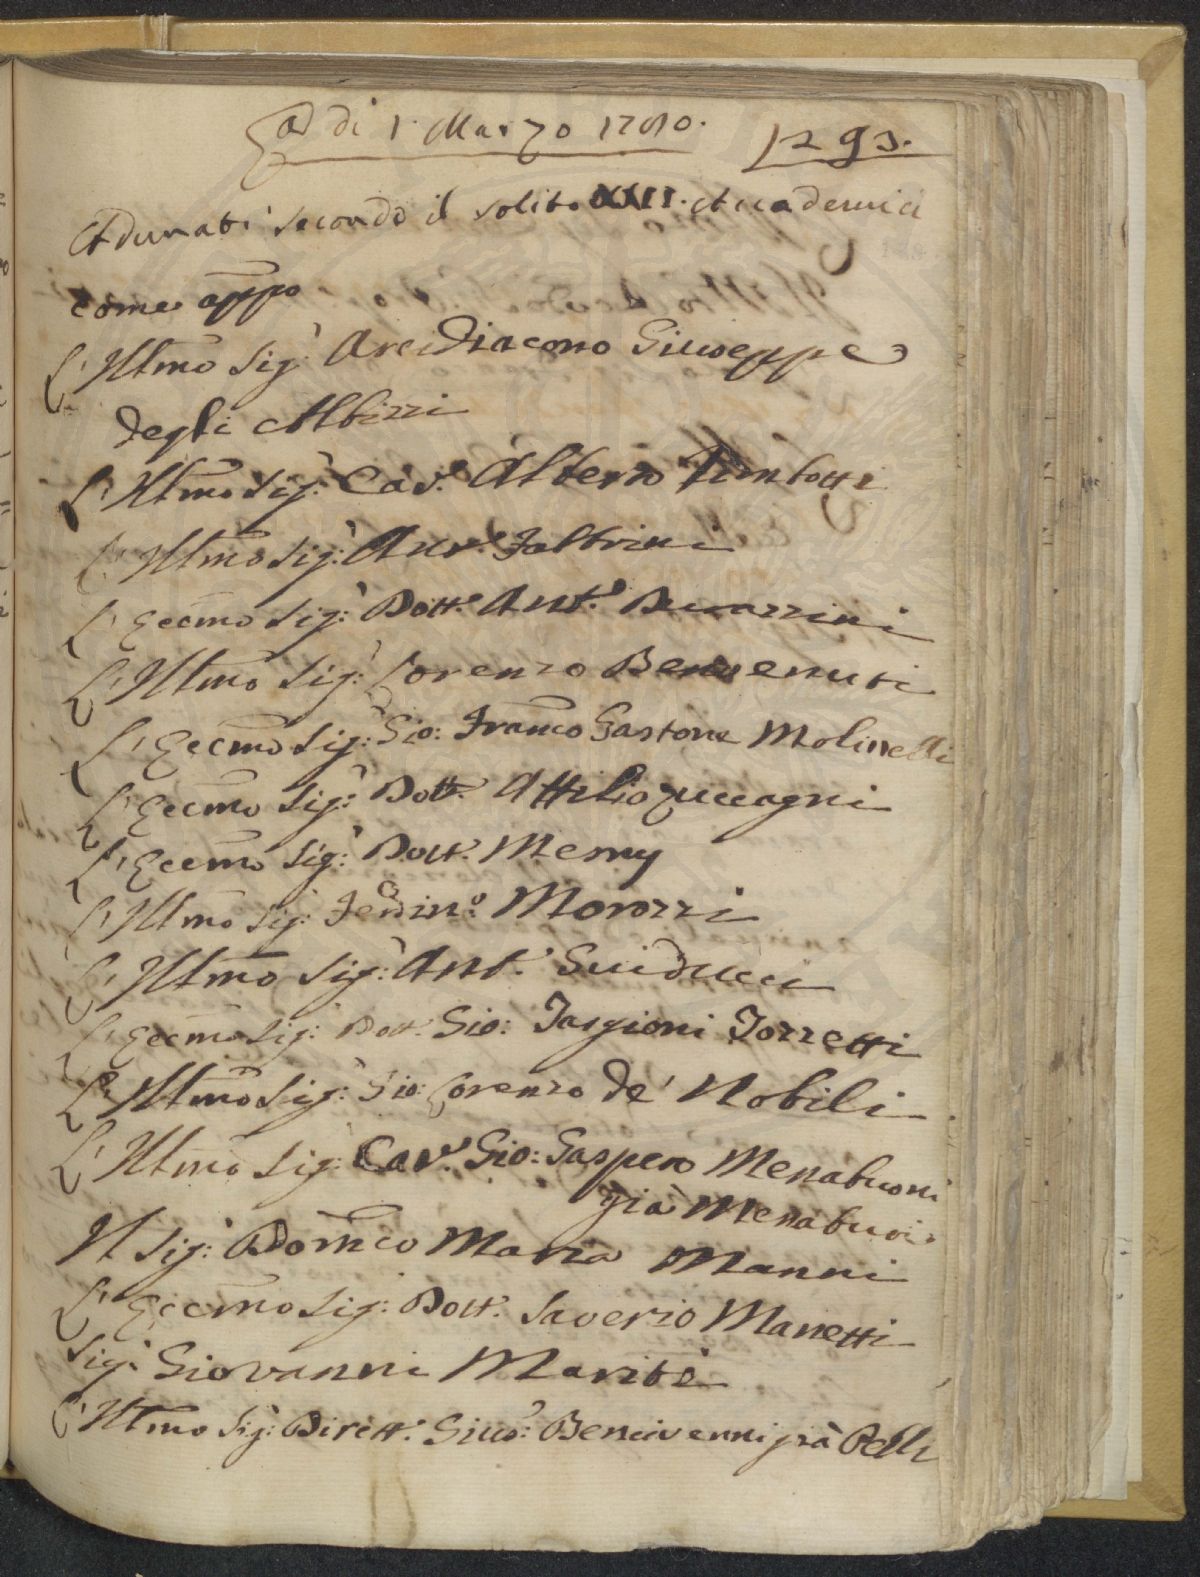 A di 1. Marzo 1780. 293.
Adunati secondo il solito XXII. Accademici
come appo
L'Illmo Sig.r Arcidiacono Giuseppe
degli Albizzi
L'Illmo Sig.r Cav.e Alberto Rimbotti
L'Illmo Sig.r And.a Fabbrini
L'Eccmo Sig.r Dott.e Ant.o Durazzini
L'Illmo Sig.r Lorenzo Benvenuti
L'Eccmo Sig.r Gio: Franco Gastone Molinelli
L'Eccmo Sig.r Dott.e Attilio Zuccagni
L'Eccmo Sig.r Dott.e Memmy
L'Illmo Sig.r Ferdin.o Morozzi
L'Illmo Sig.r Ant.o Guiducci
L'Eccmo Sig.r Dott.e Gio: Targioni Tozzetti
L'Illmo Sig.r Gio: Lorenzo de' Nobili
L'Illmo Sig.r Cav.e Gio: Gaspero Menabuoni
già Menabuoi
Il Sig.r Domco Maria Manni
L'Eccmo Sig.r Dott.e Saverio Manetti
Sig.r Giovanni Mariti
L'Illmo Sig.r Dirett.e Gius.e Bencivenni già Pelli